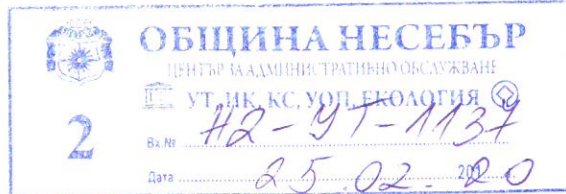 ОБЩИНА НЕСЕБЪР
ЦЕНТЪР ЗА АДМИНИСТРАТИВНО ОБСЛУЖВАНЕ
УТ, ИК, КС, УОП, ЕКОЛОГИЯ
2
Вх.№ Н2-УТ-1137
Дата 25.02.2020